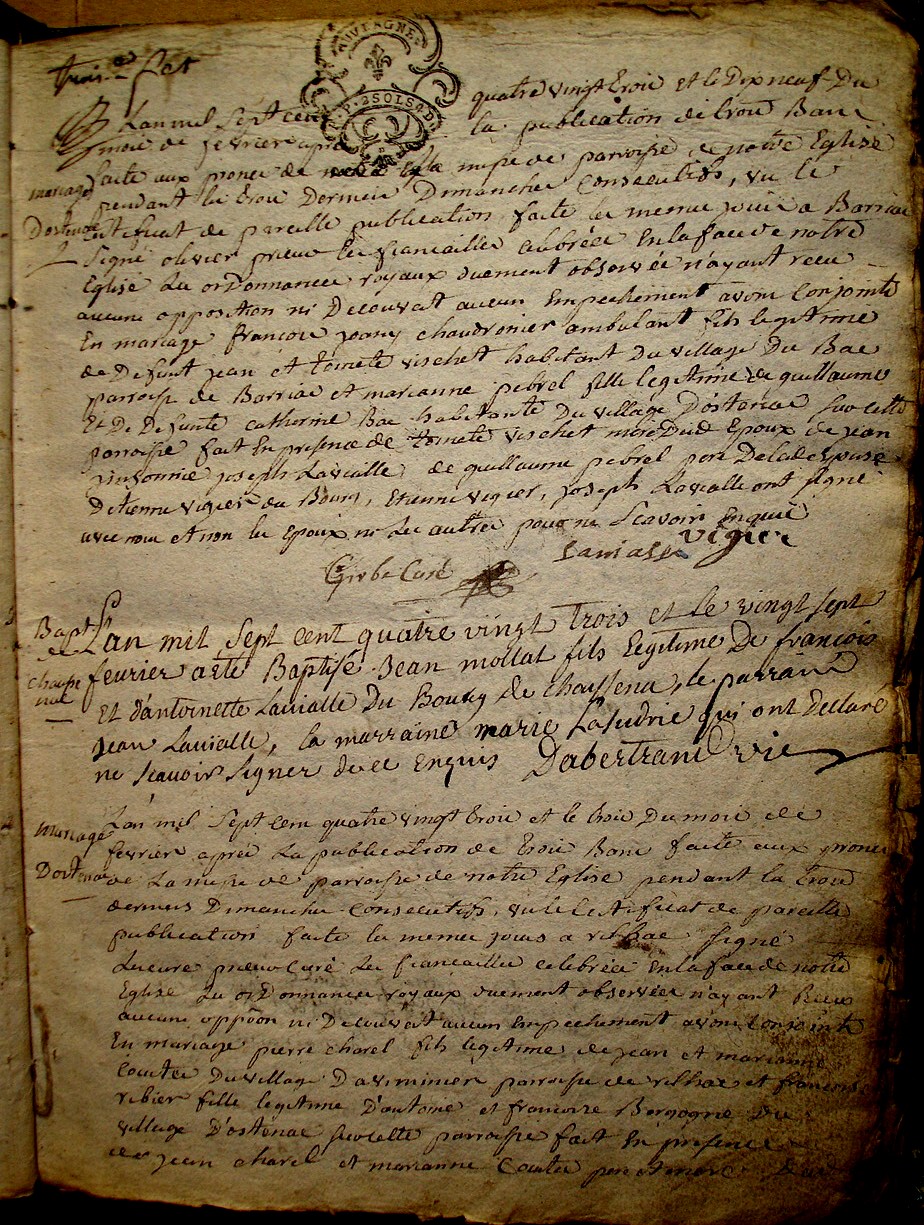 trois.e fet
AUVERGNE
P. 2 SOLS 4 D
L'an mil Sept cent quatre vingt trois et le Dix neuf Du
mois de fevrier apres la publication de trois Bans
faite aux prones de la messe de parroisse de notre Eglise
mariage
pendant les trois Derniers Dimanches Consecutifs, vu le
D'ostenac
certificat de pareille publication faite les memes jours a Barriac
Signé olivier prieur les fiancailles celebrées En la face de notre
Eglise Les ordonnances royaux duement observées n'ayant recu
aucune opposition ni Decouvert aucun Empechement avons Conjoints
En mariage francois joany chaudronier ambulant fils legitime
de Defunt jean et tomete vischet habitant Du village Du Bac
parroisse de Barriac et marianne pebrel fille legitime de guillaume
Et De Defunte catherine Bac habitante Du village D'ostenac sus cette
parroisse fait En presence de tomete vischet mere Dud Epoux de jean
joseph Lavialle, de guillaume pebrel pere De lad Epouse
D'etienne vigier du Bourg, Etienne vigier, joseph Lavialle ont signé
avec nous et non les Epoux ni Les autres pour ne Scavoir Enquis
Lavialle Vigier
Curé
Bapt
L'an mil Sept cent quatre vingt trois et le vingt sept
fevrier a été Baptisé Jean mollat fils Legitime De francois
Et d'antoinette Lavialle Du Bourg de Chaussenac, le parrain
Jean Lavialle, la marraine marie Lafudrie qui ont declaré
ne scavoir Signer de ce Enquis Dabertrand vic
mariage
L'an mil Sept cent quatre vingt trois et le trois Du mois de
fevrier aprés La publication de trois Bans faite aux prones
D'ostenac
de La messe de parroisse de notre Eglise pendant les trois
derniers Dimanches Consecutifs, vu le certificat de pareille
publication faite les memes jours a rilhac Signé
prieur curé Les fiancailles celebrées En la face de notre
Eglise Les ordonnances royaux duement observées n'ayant Recu
aucune oppôon ni Decouvert aucun Empechement avons Conjoints
En mariage pierre charel fils legitime de jean et marianne
Coudre Du village D'aviminier parroisse de rilhac et francoise
ribier fille legitime D'antoine et francoise Borgogne Du
village D'ostenac sus cette parroisse fait En presence
de jean charel et marianne Coudre pere et mere